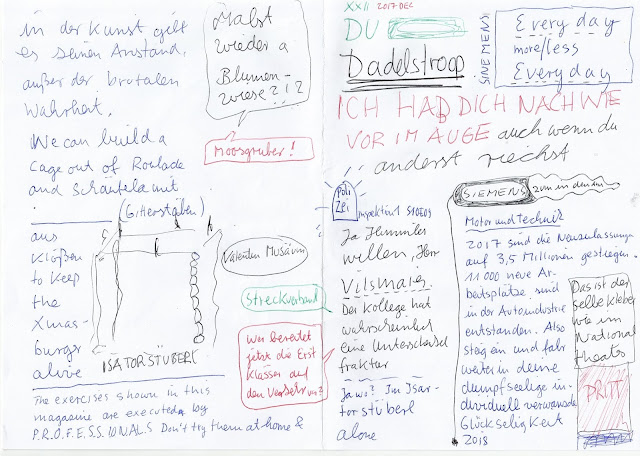 in der Kunst gibt
es seinen Anstand,
außer der brutalen
Wahrheit.
We can build a
cage out of Roulade
and Schäufela mit
(Gitterstäben)
aus
Klößen
to keep
the
Xmas-
burger
alive
ISATORSTÜBERL
The exercises shown in this
magazine are executed by
P.R.O.F.E.S.S.IONALS Don't try them at home &
Malst
wieder a
Blumen-
wiese?!?
Moosgruber!
Valentin Musäum
Streckverband
Wer bereitet
jetzt die Erst
klässer auf
den Versehr
vor?
XXII 2017 DEC
DU
Dadelstroop
SINEMENS
Every day
more/less
Everyday
ICH HAB DICH NACH WIE
VOR IM AUGE auch wenn du
anderst riechst
Poli
Zei
Inspektion 1 S10E09
Ja Himmler
willen, Herr
Vilsmaier
Der Kollege hat
wahrscheinlich
eine Unterschenkel
fraktur
Ja wo? Im Isar-
torstüberl
alone
SIEMENS
Motor und Technik
2017 sind die Neuzulassungen
auf 3,5 Millionen gestiegen.
11000 neue Ar-
beitsplätze sind
in der Autoindustrie
entstanden. Also
steig ein und fahr
weiter in deine
dumpfseelige in-
dividuell verwanzte
Glückseligkeit
2018
Das ist der
selbe Kleber
wie im
National
theater
PRITT